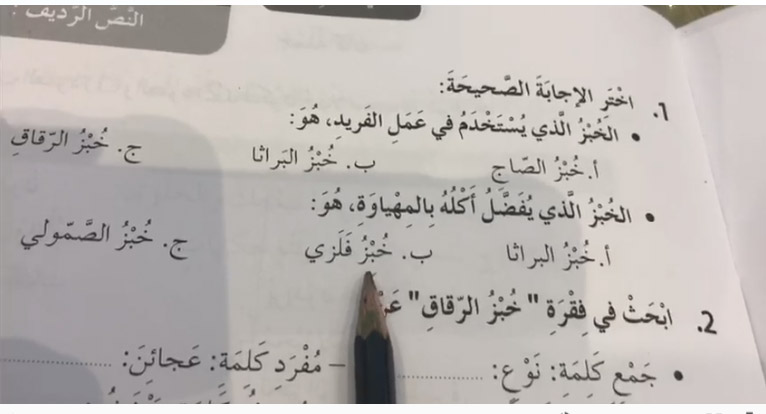 النص الرديف
1. اخْتَرِ الإجابَةَ الصَّحيحَةَ:
• الخُبْزُ الَّذي يُسْتَخْدَمُ في عَمَلِ الفَريدِ، هُوَ:
أ. خُبْزُ الصّاج ب. خُبْزُ البَراثا ج. خُبْزُ الرّقاقِ
• الخُبْزُ الَّذي يُفَضَّلُ أَكْلُهُ بِالمِهْياوَةِ، هُوَ:
أ. خُبْزُ البراثا ب. خُبْزُ فَلَزي ج. خُبْزُ الصَّمّولي
2. ابْحَثْ في فِقْرَةِ "خُبْزُ الرّقاقِ"
• جَمْعِ كَلِمَةِ: نَوْعِ: .................. – مُفْرَدِ كَلِمَةِ: عَجائِنَ: ..................